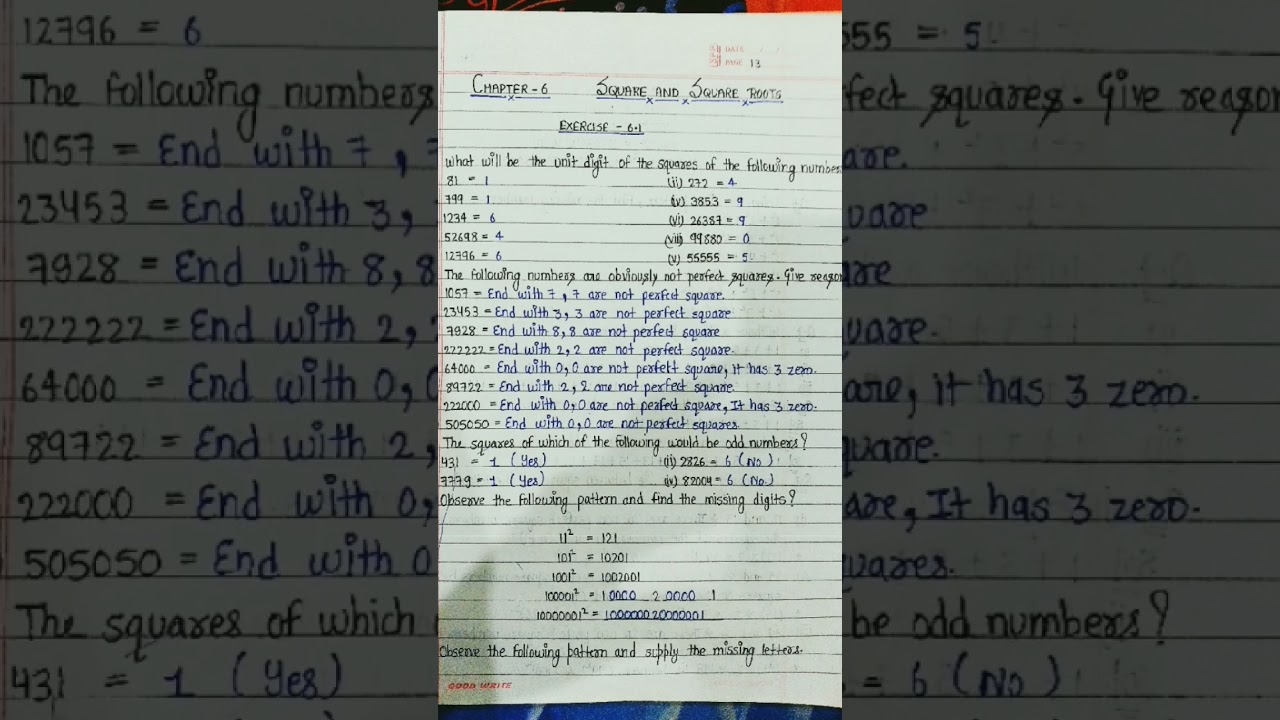 DATE
PAGE 13
CHAPTER-6 SQUARE AND SQUARE ROOTS
EXERCISE - 6.1
What will be the unit digit of the squares of the following number
81 = 1 (ii) 272 = 4
799 = 1 (iv) 3853 = 9
1234 = 6 (vi) 26387 = 9
52698 = 4 (viii) 99880 = 0
12796 = 6 (v) 55555 = 5
The following numbers are obviously not perfect squares. Give reason
1057 = End with 7, 7 are not perfect square.
23453 = End with 3, 3 are not perfect square
7928 = End with 8, 8 are not perfect square
222222 = End with 2, 2 are not perfect square.
64000 = End with 0, 0 are not perfekt square, it has 3 zero.
89722 = End with 2, 2 are not perfect square.
222000 = End with 0, 0 are not perfect square, It has 3 zero.
505050 = End with 0, 0 are not perfect squares.
The squares of which of the following would be odd numbers?
431 = 1 (Yes) (ii) 2826 = 6 (No)
7779 = 1 (Yes) (iv) 82004 = 6 (No)
Observe the following pattern and find the missing digits?
11² = 121
101² = 10201
1001² = 1002001
100001² = 10000 20000 1
10000001² = 100000020000001
Observe the following pattern and supply the missing letters.
GOOD WRITE
12796 = 6
The following numbers
1057 = End with 7, 7
23453 = End with 3,
7928 = End with 8, 8
222222 = End with 2,
64000 = End with 0, 0
89722 = End with 2,
222000 = End with 0,
505050 = End with 0
The squares of which
431 = 1 (Yes)
555 = 5
fect squares. Give reason
are.
uare
uare
uare.
are, it has 3 zero.
quare.
are, It has 3 zero.
uares.
be odd numbers?
= 6 (No)